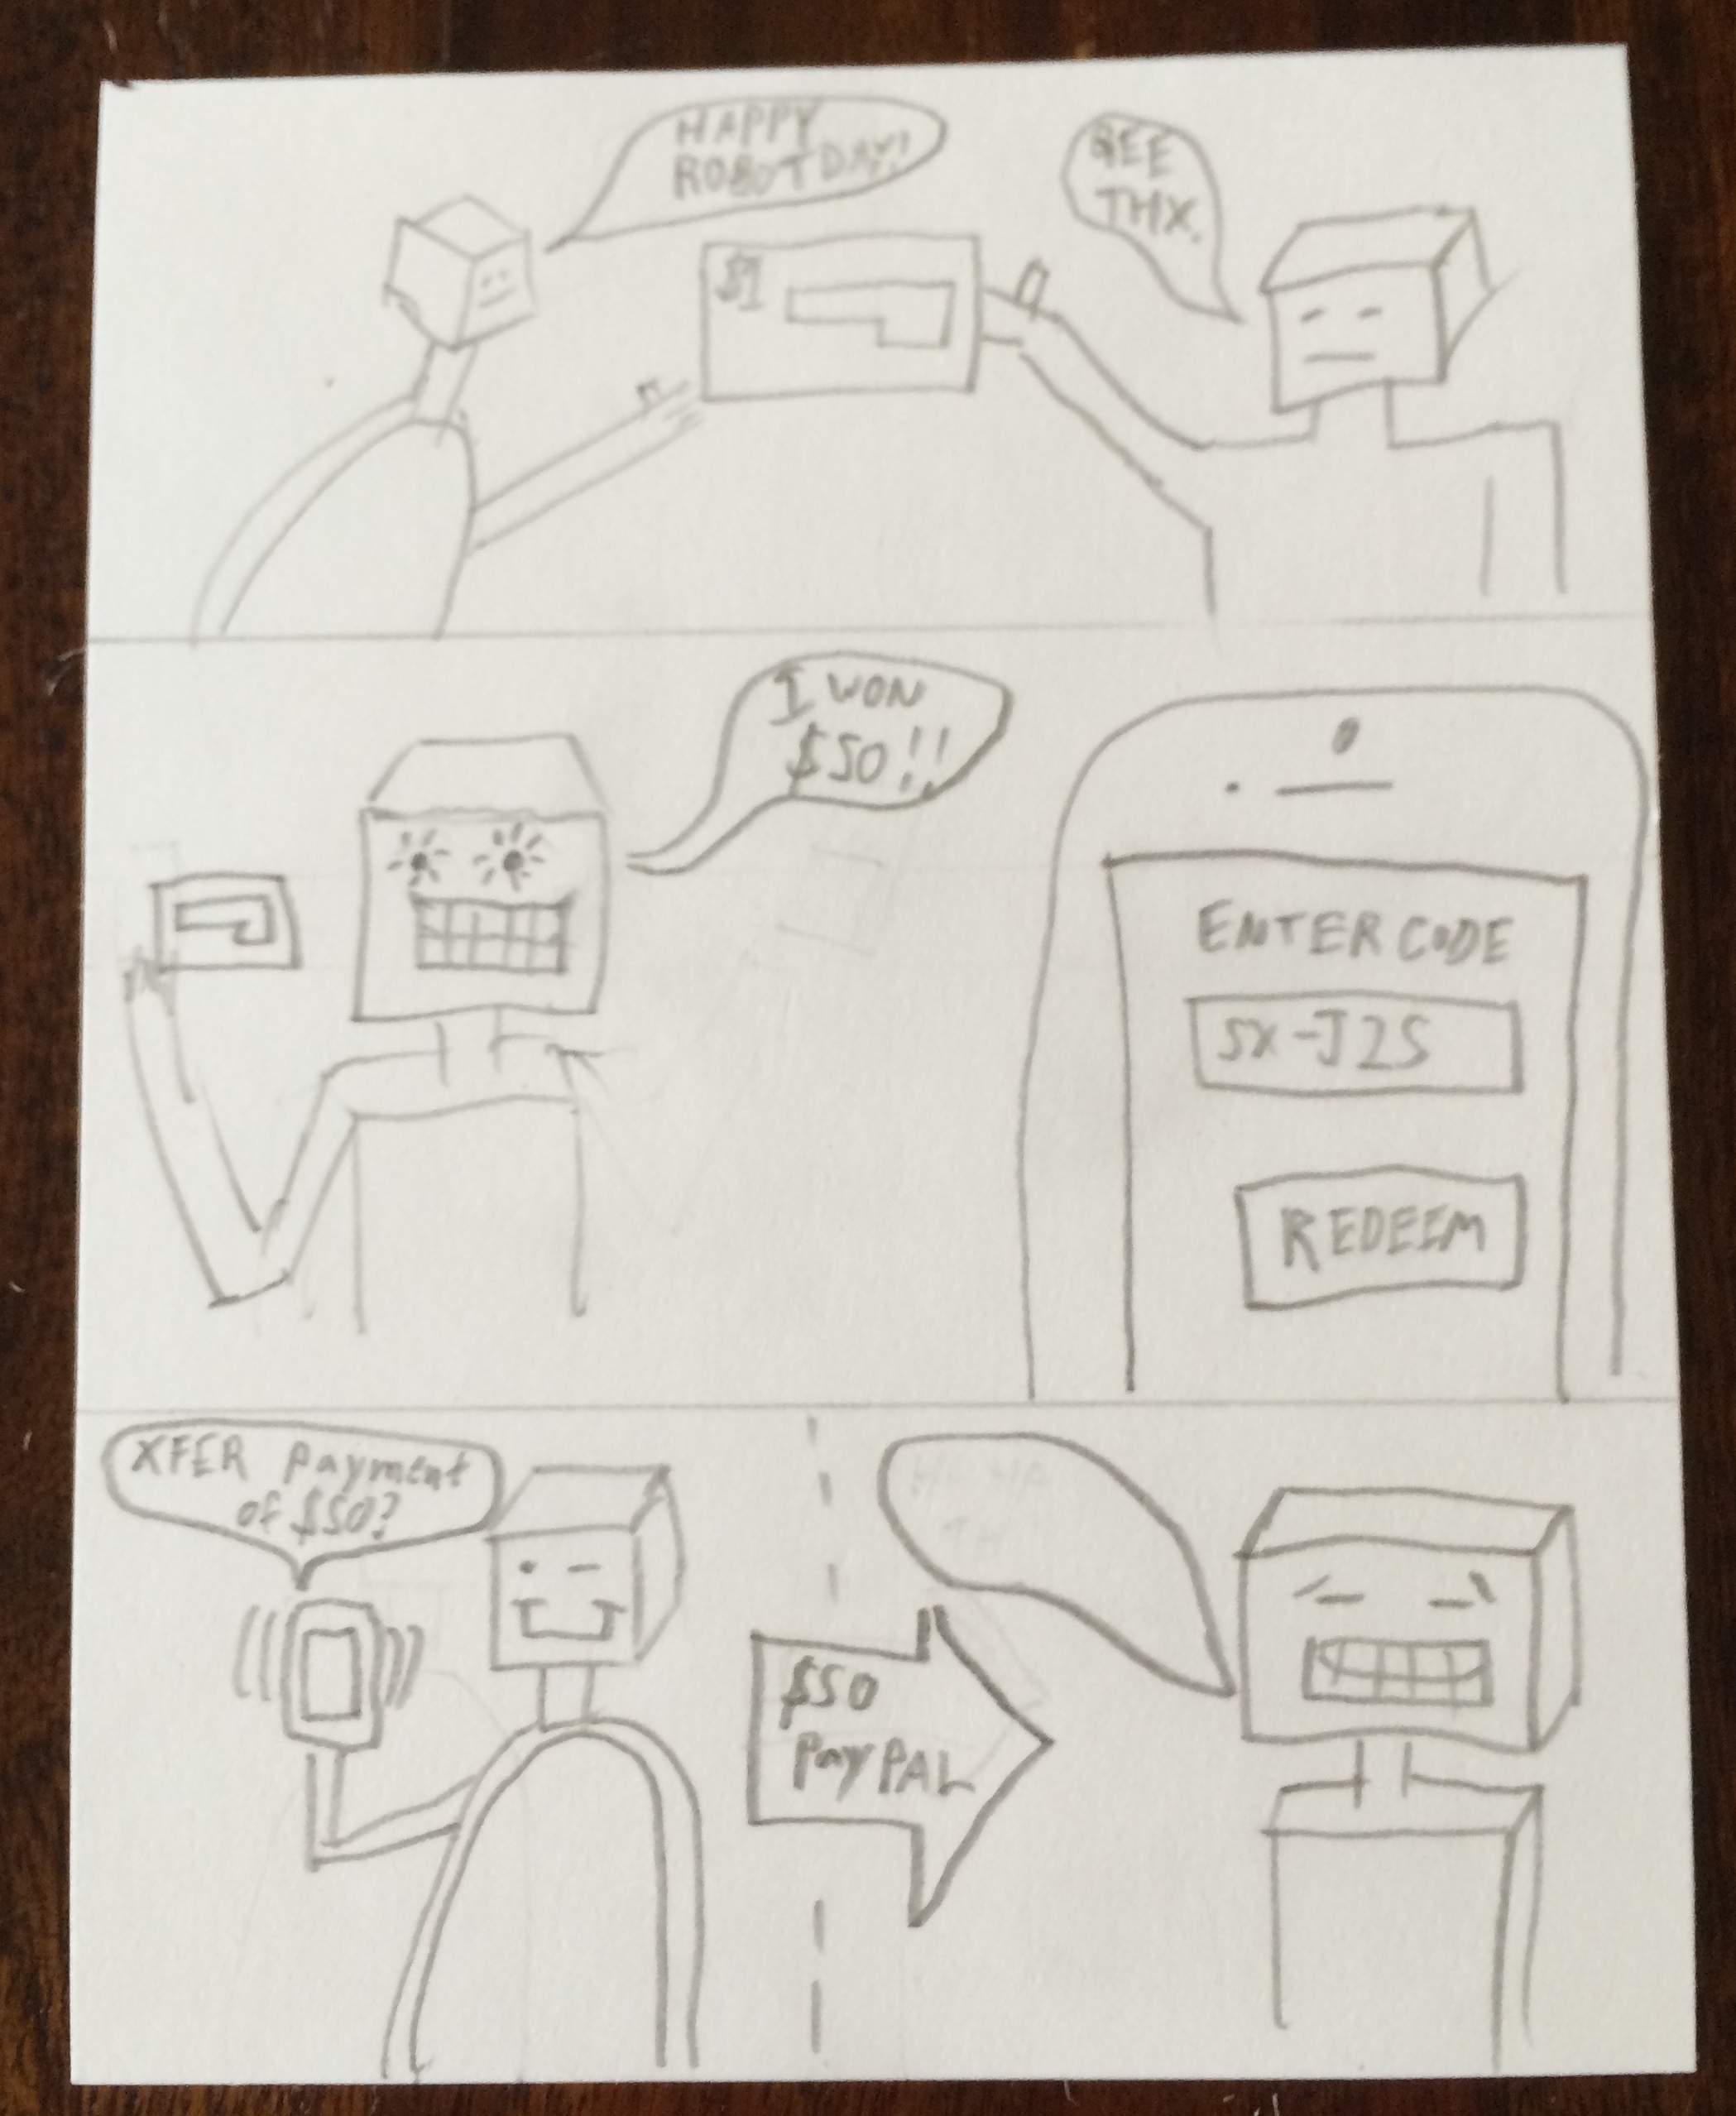 HAPPY
ROBOT DAY!
GEE
THX.
$1
I WON
$50!!
ENTER CODE
SX-J2S
REDEEM
XFER payment
of $50?
$50
PayPAL